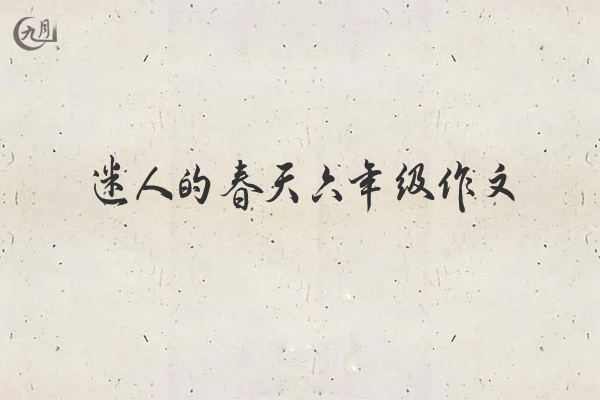 九月
迷人的春天六年级作文